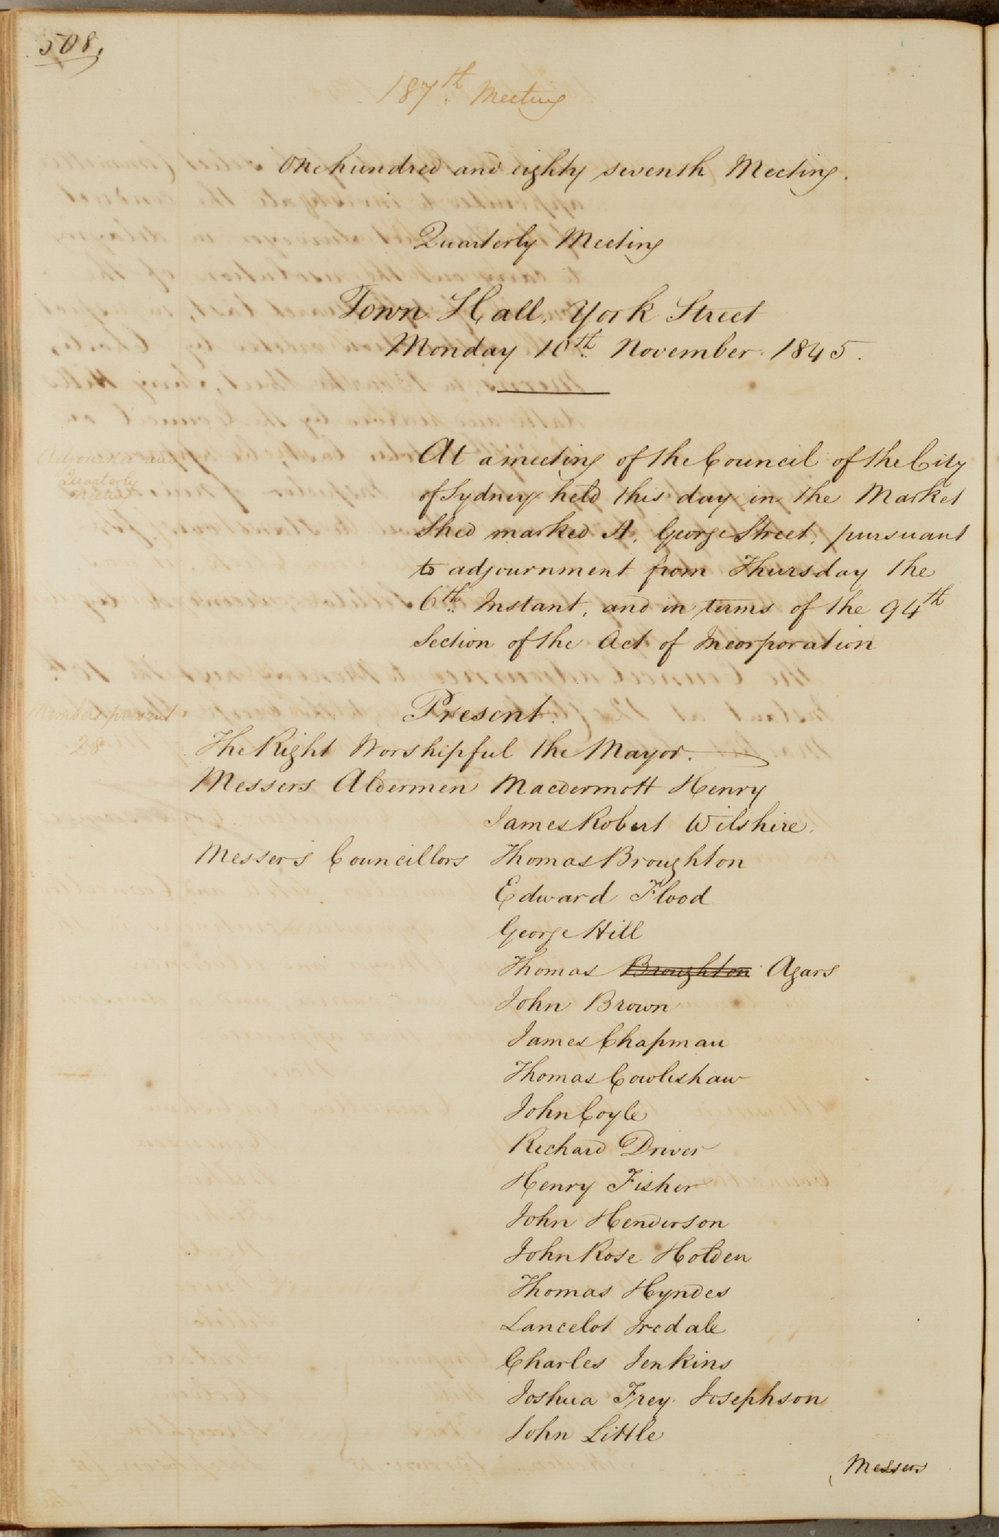 508,
187th Meeting
One hundred and eighty seventh Meeting.
Quarterly Meeting
Town Hall, York Street
Monday 10th November 1845.
Adjourned
Quarterly
At a meeting of the Council of the City
of Sydney held this day in the Market
Shed marked A. George Street, pursuant
to adjournment from Thursday the
6th Instant, and in terms of the 94th
Section of the Act of Incorporation
Members present
28
Present.
The Right Worshipful the Mayor.
Messers Aldermen Macdermott Henry
James Robert Wilshire.
Messers Councillors Thomas Broughton
Edward Flood
George Hill
Thomas Broughton Agars
John Brown
James Chapman
Thomas Cowlishaw
John Coyle
Richard Driver
Henry Fisher
John Henderson
John Rose Holden
Thomas Hyndes
Lancelot Iredale
Charles Jenkins
Joshua Frey Josephson
John Little
Messers